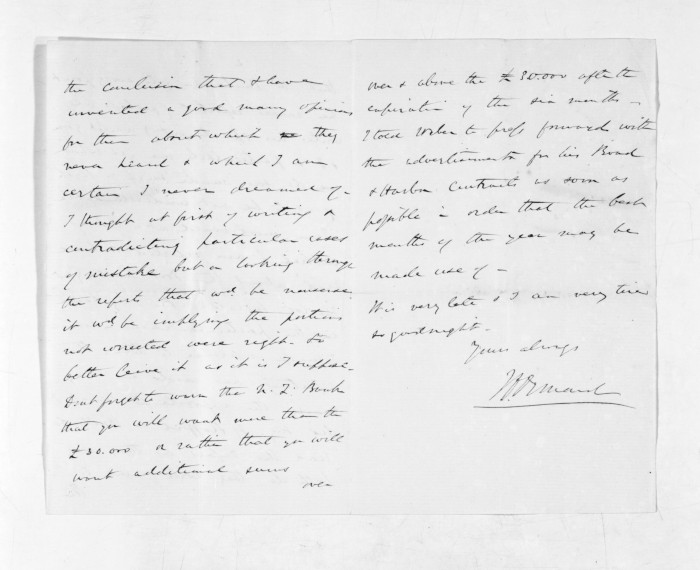 the conclusion that I have
invented a good many opinions
for them about which they
never heard & which I am
certain I never dreamed of -
I thought at first of writing &
contradicting particular cases
of mistake but on looking through
the report that wd. be nonsense
it wd be implying the portions
not corrected were right - So
better leave it as it is I suppose -
Dont forget to warn the N. Z. Bank
that you will want more than the
£30.000 or rather that you will
want additional sums
over
over & above the £30.000 after the
expiration of the six months -
I told Weber to press forward with
the advertisements for his Road
& Harbor Contracts as soon as
possible in order that the best
months of the year may be
made use of -
It is very late & I am very tired
so goodnight -
Yours always
JD Ormond